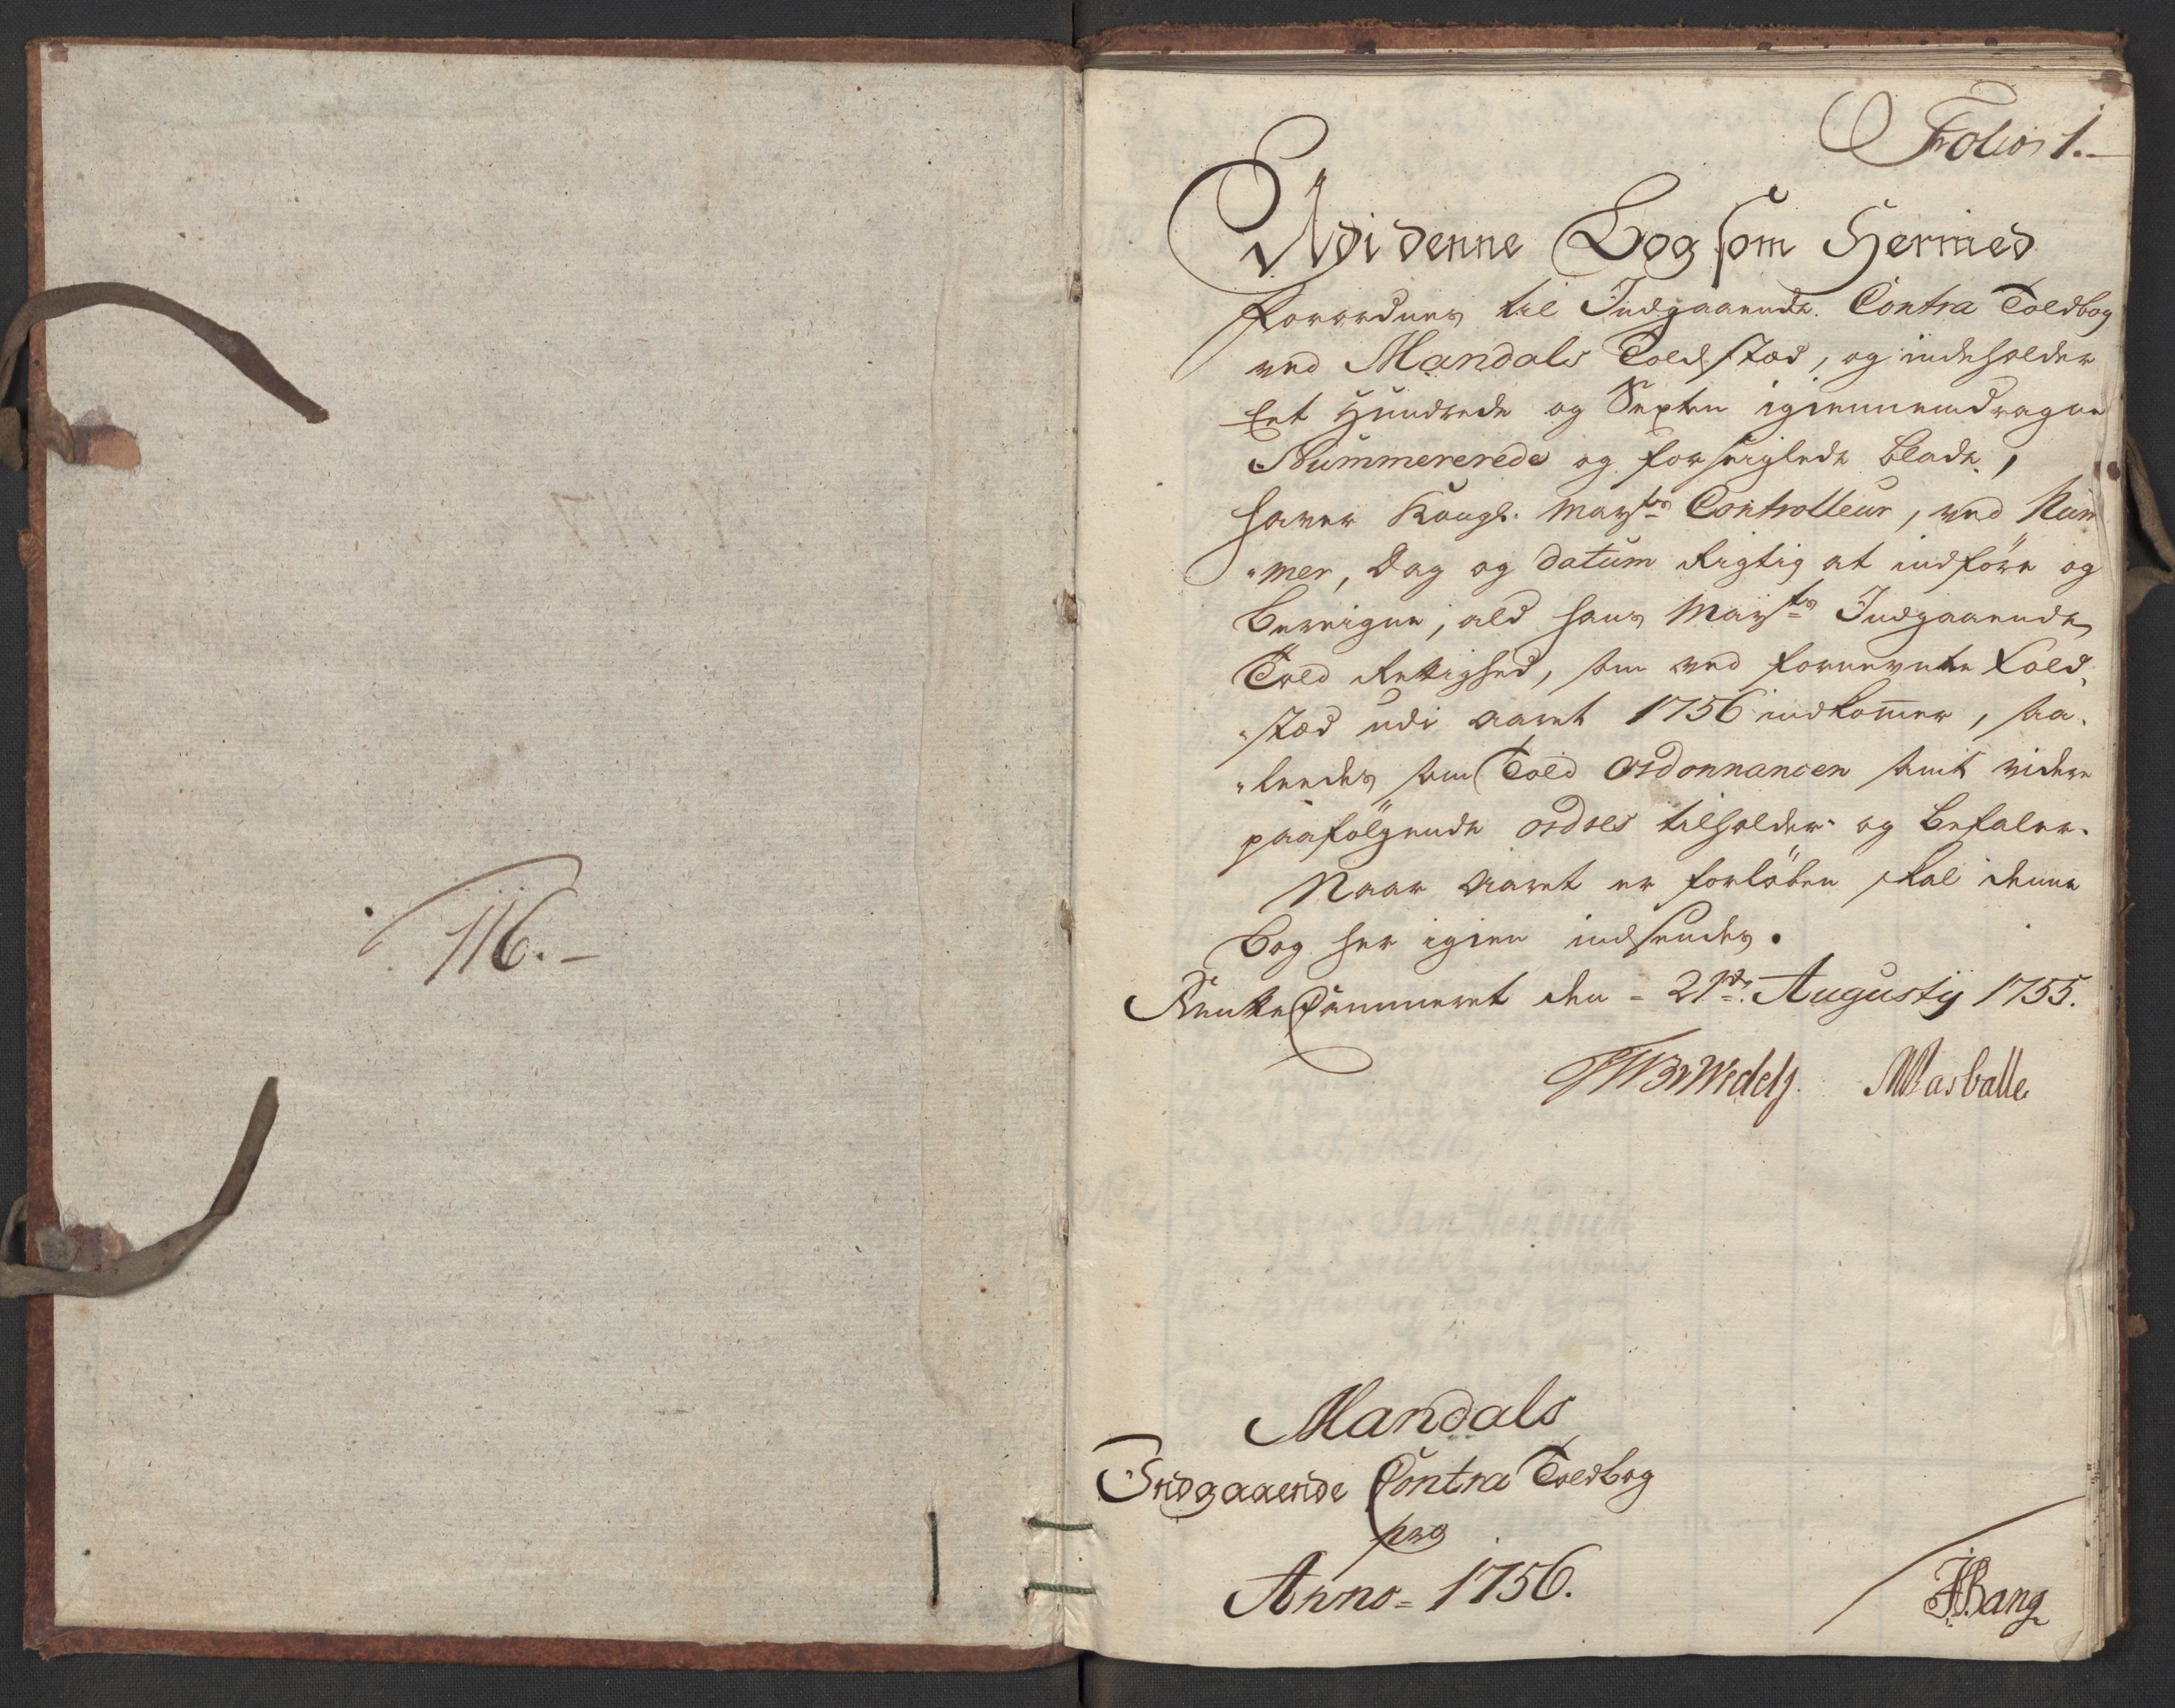 116.-
Folio 1.-
Udi denne Bog som Hermed
forordnes til Indgaaende Contra Toldbog
ved Mandals Toldstæd, og indeholder
Eet Hundrede og Sexten igiennemdragne
Nummererede og forseiglede blade,
haver Kongl. Mayts Controlleur, ved Num
"mer, Dag og datum Rigtig at indföre og
Bereigne, ald hans Mayts Indgaaende
Told Rettighed, som ved fornevnte Told,
"stæd udi aaret 1756 indkommer, saa,
"leedes som Told Ordonnancen samt videre
paafölgende ordres tilholder og befaler.
Naar Aaret er forlöben skal denne
Bog her igien indsendes.
RenteCammeret den = 21de Augustij 1755.
Mandals
Indgaaende Contra Toldbog
pro
Anno = 1756.
Bang